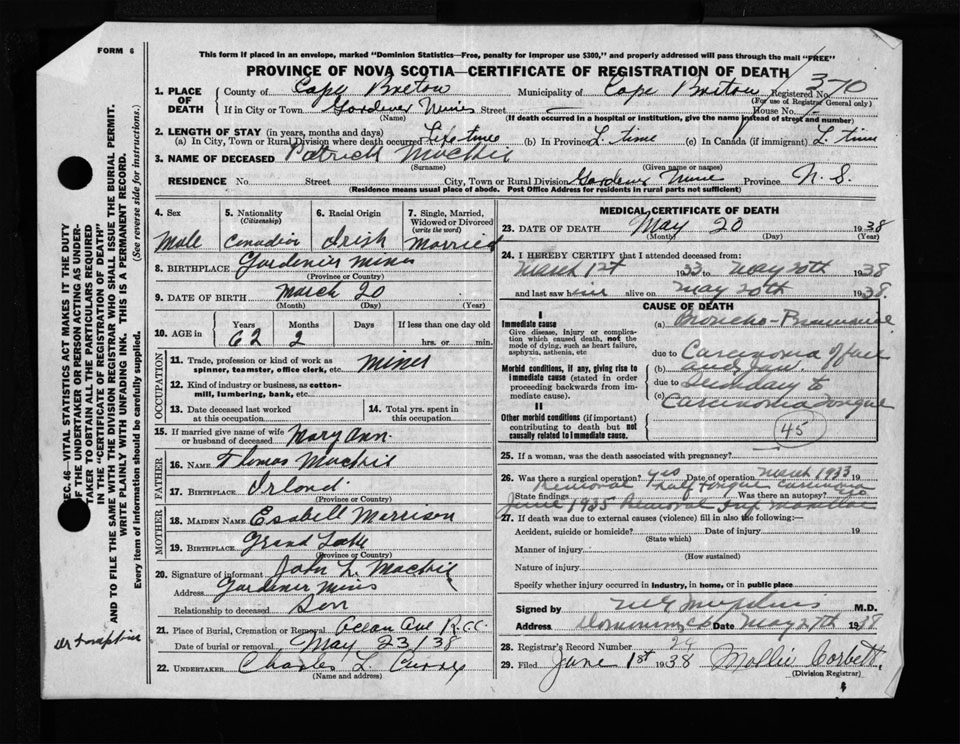 FORM 6
This form if placed in an envelope, marked "Dominion Statistics—Free, penalty for improper use $300," and properly addressed will pass through the mail "FREE"
PROVINCE OF NOVA SCOTIA—CERTIFICATE OF REGISTRATION OF DEATH
370
1. PLACE OF DEATH County of Cape Breton Municipality of Cape Breton Registered No.
(For use of Registrar General only)
If in City or Town Gardener Mines Street House No.
(Name) (If death occurred in a hospital or institution, give the name instead of street and number)
2. LENGTH OF STAY (in years, months and days)
(a) In City, Town or Rural Division where death occurred Life time (b) In Province L. time (c) In Canada (if immigrant) L. time
3. NAME OF DECEASED Patrick
(Surname) (Given name or names)
RESIDENCE No. Street City, Town or Rural Division Gardener Mine Province N. S.
(Residence means usual place of abode. Post Office Address for residents in rural parts not sufficient)
4. Sex
Male
5. Nationality (Citizenship)
Canadian
6. Racial Origin
Irish
7. Single, Married, Widowed or Divorced (write the word)
Married
8. BIRTHPLACE Gardenier Mines
(Province or Country)
9. DATE OF BIRTH March 20
(Month) (Day) (Year)
10. AGE in Years Months Days If less than one day old
62 2 hrs. or min.
OCCUPATION
11. Trade, profession or kind of work as spinner, teamster, office clerk, etc. Miner
12. Kind of industry or business, as cotton-mill, lumbering, bank, etc.
13. Date deceased last worked at this occupation
14. Total yrs. spent in this occupation
15. If married give name of wife or husband of deceased Mary Ann
FATHER
16. NAME Thomas
17. BIRTHPLACE Irland
(Province or Country)
MOTHER
18. MAIDEN NAME Essabell Merrison
19. BIRTHPLACE Grand Lake
(Province or Country)
20. Signature of informant John L.
Address Gardener Mines
Relationship to deceased Son
21. Place of Burial, Cremation or Removal R.C.C.
Date of burial or removal May 23/38
22. UNDERTAKER Charles L.
(Name and address)
MEDICAL CERTIFICATE OF DEATH
23. DATE OF DEATH May 20 1938
(Month) (Day) (Year)
24. I HEREBY CERTIFY that I attended deceased from:
March 1st 1933 to May 20th 1938
and last saw him alive on May 20th 1938.
CAUSE OF DEATH
I
Immediate cause
Give disease, injury or complication which caused death, not the mode of dying, such as heart failure, asphyxia, asthenia, etc
(a) Broncho-Pneumonia
due to
Morbid conditions, if any, giving rise to immediate cause (stated in order proceeding backwards from immediate cause).
(b) Carcinoma of face
due to
(c) Secondary to
Carcinoma tongue
II
Other morbid conditions (if important) contributing to death but not causally related to immediate cause.
45
25. If a woman, was the death associated with pregnancy?
26. Was there a surgical operation? yes Date of operation March 1933 19
Removal half tongue
State findings Was there an autopsy? no
June 1935 Removal
27. If death was due to external causes (violence) fill in also the following:—
Accident, suicide or homicide? Date of injury 19
(State which)
Manner of injury
(How sustained)
Nature of injury
Specify whether injury occurred in industry, in home, or in public place
Signed by M.D.
Address Dominion, C.B. Date May 27th 1938
28. Registrar's Record Number 24
29. Filed June 1st 1938 Mollie Corbett
(Division Registrar)
SEC. 46—VITAL STATISTICS ACT MAKES IT THE DUTY
OF THE UNDERTAKER OR PERSON ACTING AS UNDER-
TAKER TO OBTAIN ALL THE PARTICULARS REQUIRED
IN THE "CERTIFICATE OF REGISTRATION OF DEATH"
AND TO FILE THE SAME WITH THE DIVISION REGISTRAR WHO SHALL ISSUE THE BURIAL PERMIT.
WRITE PLAINLY WITH UNFADING INK. THIS IS A PERMANENT RECORD.
Every item of information should be carefully supplied. (See reverse side for instructions.)
Dr Tompkins